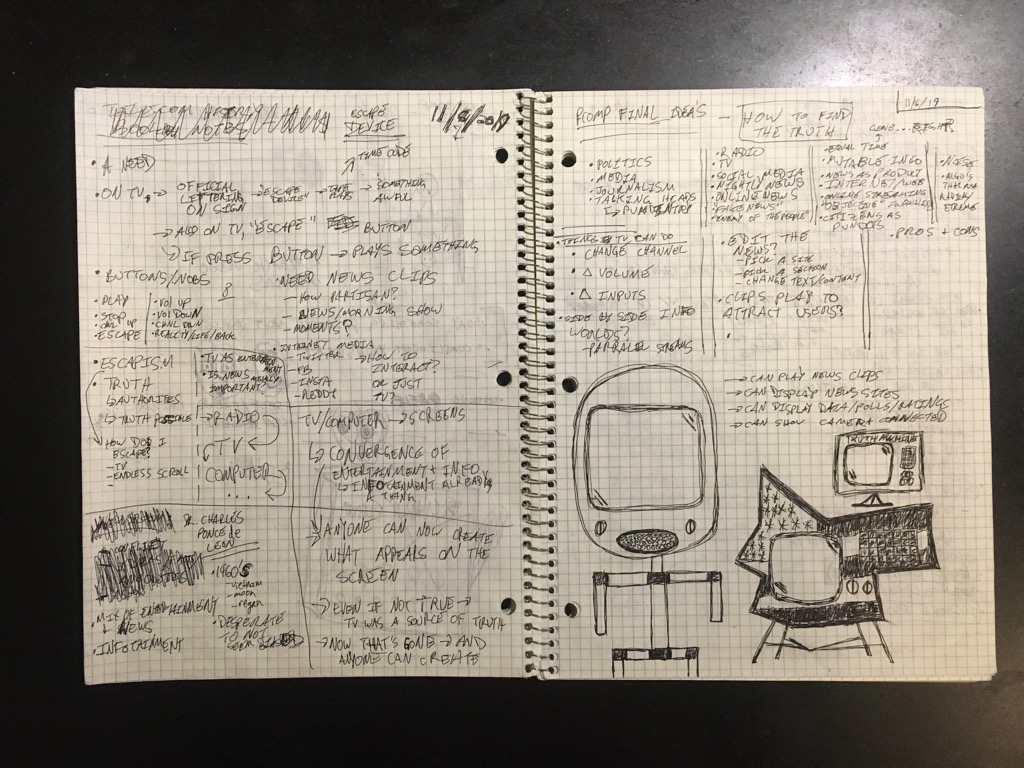 ESCAPE
DEVICE
TIME CODE
• A NEED
• ON TV → OFFICIAL LETTERING ON SIGN → "ESCAPE DEVICE" → TAPE PLAYS → SOMETHING AWFUL
→ ALSO ON TV, "ESCAPE" BUTTON
IF PRESS BUTTON → PLAYS SOMETHING
• BUTTONS/NOBS
• PLAY
• STOP
• CHNL UP
• ESCAPE
• VOL UP
• VOL DOWN
• CHNL DOWN
• NEED NEWS CLIPS
– HOW PARTISAN?
– NEWS/MORNING SHOW
– MOMENTS?
• INTERNET MEDIA
– TWITTER
– FB
– INSTA
– REDDIT
→ HOW TO
INTERACT?
OR JUST
TV?
• ESCAPISM
• TRUTH
↳ AUTHORITES
↳ TRUTH POSSIBLE
HOW DO I
ESCAPE?
– TV
– ENDLESS SCROLL
–
• TV AS ENTERTAINMENT
• IS NEWS REALLY
IMPORTANT?
→ RADIO
TV
COMPUTER
...
TV/COMPUTER → SCREENS
↳ CONVERGENCE OF
ENTERTAINMENT + INFO
↳ INFOTAINMENT ALREADY
A THING
→ ANYONE CAN NOW CREATE
WHAT APPEARS ON THE
SCREEN
→ EVEN IF NOT TRUE →
TV WAS A SOURCE OF TRUTH
→ NOW THAT'S GONE → AND
ANYONE CAN CREATE
DR. CHARLES
PONCE de
LEON
• 1960'S
– vietnam
– moon
– regan
• DESPERATE
TO NOT
SEEM BIASED
• MIX OF ENTERTAINMENT
+ NEWS
• INFOTAINMENT
PCOMP FINAL IDEA'S
– HOW TO FIND
THE TRUTH
11/6/19
• POLITICS
• MEDIA
• JOURNALISM
• TALKING HEADS
↳ PUNDITRY
• RADIO
• TV
• SOCIAL MEDIA
• NIGHTLY NEWS
• ONLINE NEWS
• "FAKE NEWS"
• "ENEMY OF THE PEOPLE"
GONE... RIGHT?
• EQUAL TIME
• MUTABLE INFO
• NEWS AS PRODUCT
• INTERNET/WEB
• ONLINE STREAMING
• CITIZENS AS
PUNDITS
• NOISE
• PROS + CONS
• THINGS TV CAN DO
• CHANGE CHANNEL
• Δ VOLUME
• Δ INPUTS
• SIDE BY SIDE INFO
WORLDS?
– PARALLEL STREAMS
• EDIT THE
NEWS?
– PICK A SITE
– PICK A SECTION
– CHANGE TEXT/CONTENT
• CLIPS PLAY TO
ATTRACT USERS?
•
→ CAN PLAY NEWS CLIPS
→ CAN DISPLAY NEWS SITES
→ CAN DISPLAY DATA/POLLS/RATINGS
→ CAN SHOW CAMERA CONNECTED
TRUTH MACHINE